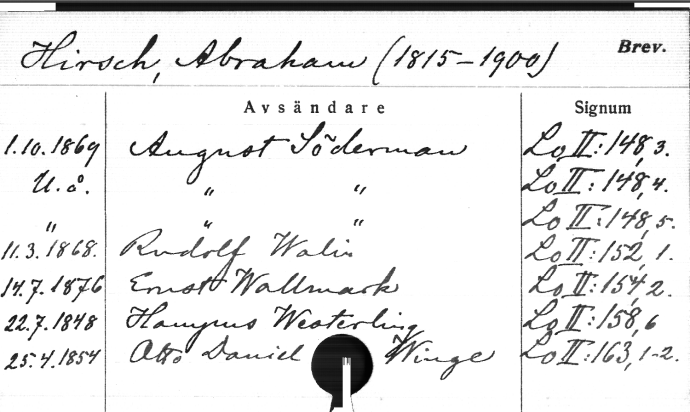 Hirsch, Abraham (1815-1900) Brev.
Avsändare Signum
1.10.1869 August Söderman Lo II:148, 3.
U.å. " " Lo II:148, 4.
" " " Lo II:148, 5.
11.3.1868. Rudolf Walin Lo II:152, 1.
14.7.1876 Ernst Wallmark Lo II:154, 2.
22.7.1848 Hampus Westerling Lo II:158, 6
25.4.1854 Otto Daniel Winge Lo II:163, 1-2.